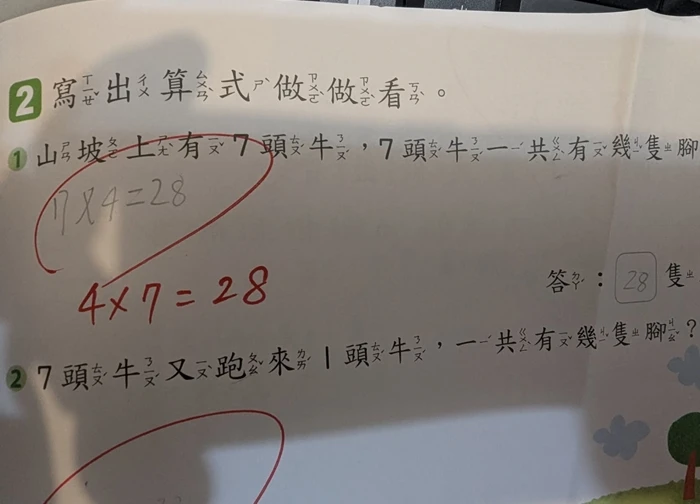 2 寫出算式，做做看。
1 山坡上有7頭牛，7頭牛一共有幾隻腳
7×4=28
4×7=28
答：28隻
2 7頭牛又跑來1頭牛，一共有幾隻腳？